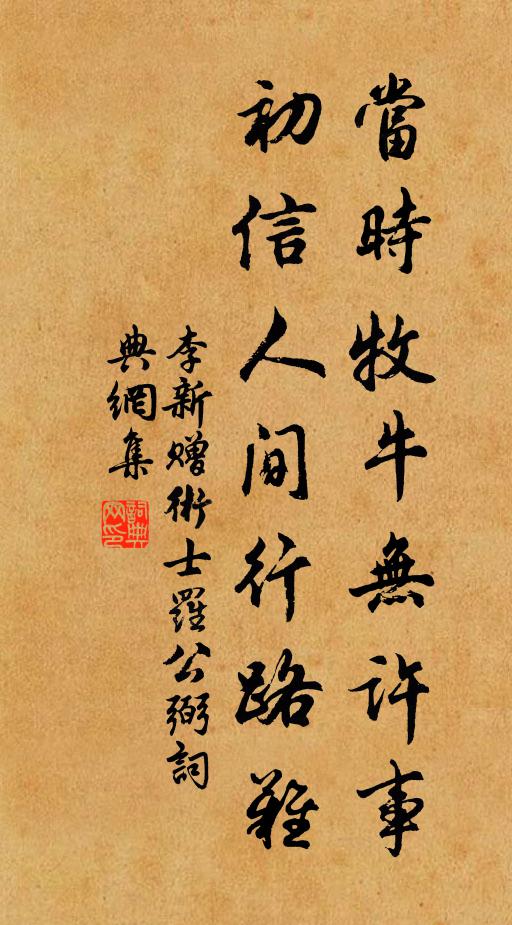 當時牧牛無許事
初信人間行路難
李新贈術士羅公弼詞
典網集
詞典
网印